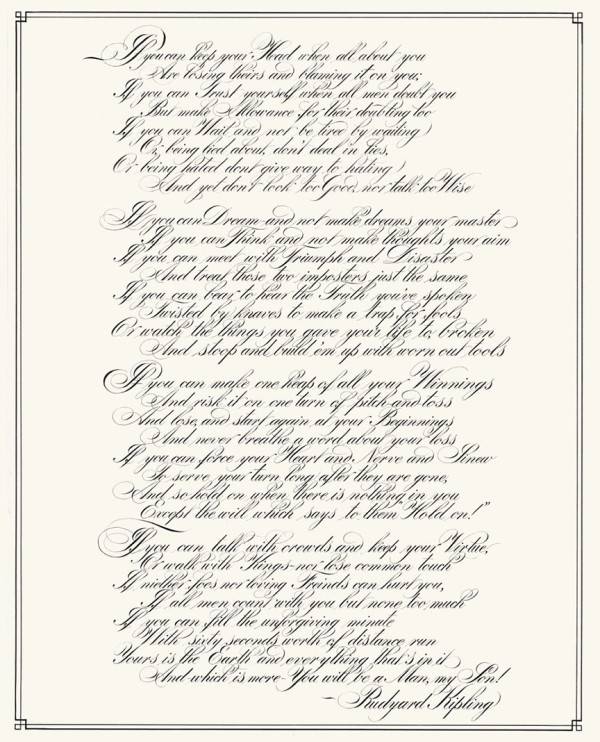 If you can keep your Head when all about you
Are losing theirs and blaming it on you;
If you can Trust yourself when all men doubt you
But make Allowance for their doubting too
If you can Wait and not be tired by waiting
Or, being lied about, don't deal in lies,
Or being hated dont give way to hating
And yet don't look too Good, nor talk too Wise
If you can Dream and not make dreams your master
If you can Think and not make thoughts your aim
If you can meet with Triumph and Disaster
And treat those two imposters just the same
If you can bear to hear the Truth you've spoken
Twisted by knaves to make a trap for fools
Or watch the things you gave your life to, broken
And stoop and build 'em up with worn out tools
If you can make one heap of all your Winnings
And risk it on one turn of pitch and toss
And lose, and start again at your Beginnings
And never breathe a word about your loss
If you can force your Heart and Nerve and Sinew
To serve your turn long after they are gone,
And so hold on when there is nothing in you
Except the will which says to them Hold on!"
If you can talk with crowds and keep your Virtue,
Or walk with Kings-nor lose common touch
If niether foes nor loving Freinds can hurt you,
If all men count with you but none too much
If you can fill the unforgiving minute
With sixty seconds worth of distance run
Yours is the Earth and everything that's in it
And which is more You will be a Man, my Son!
- Rudyard Kipling